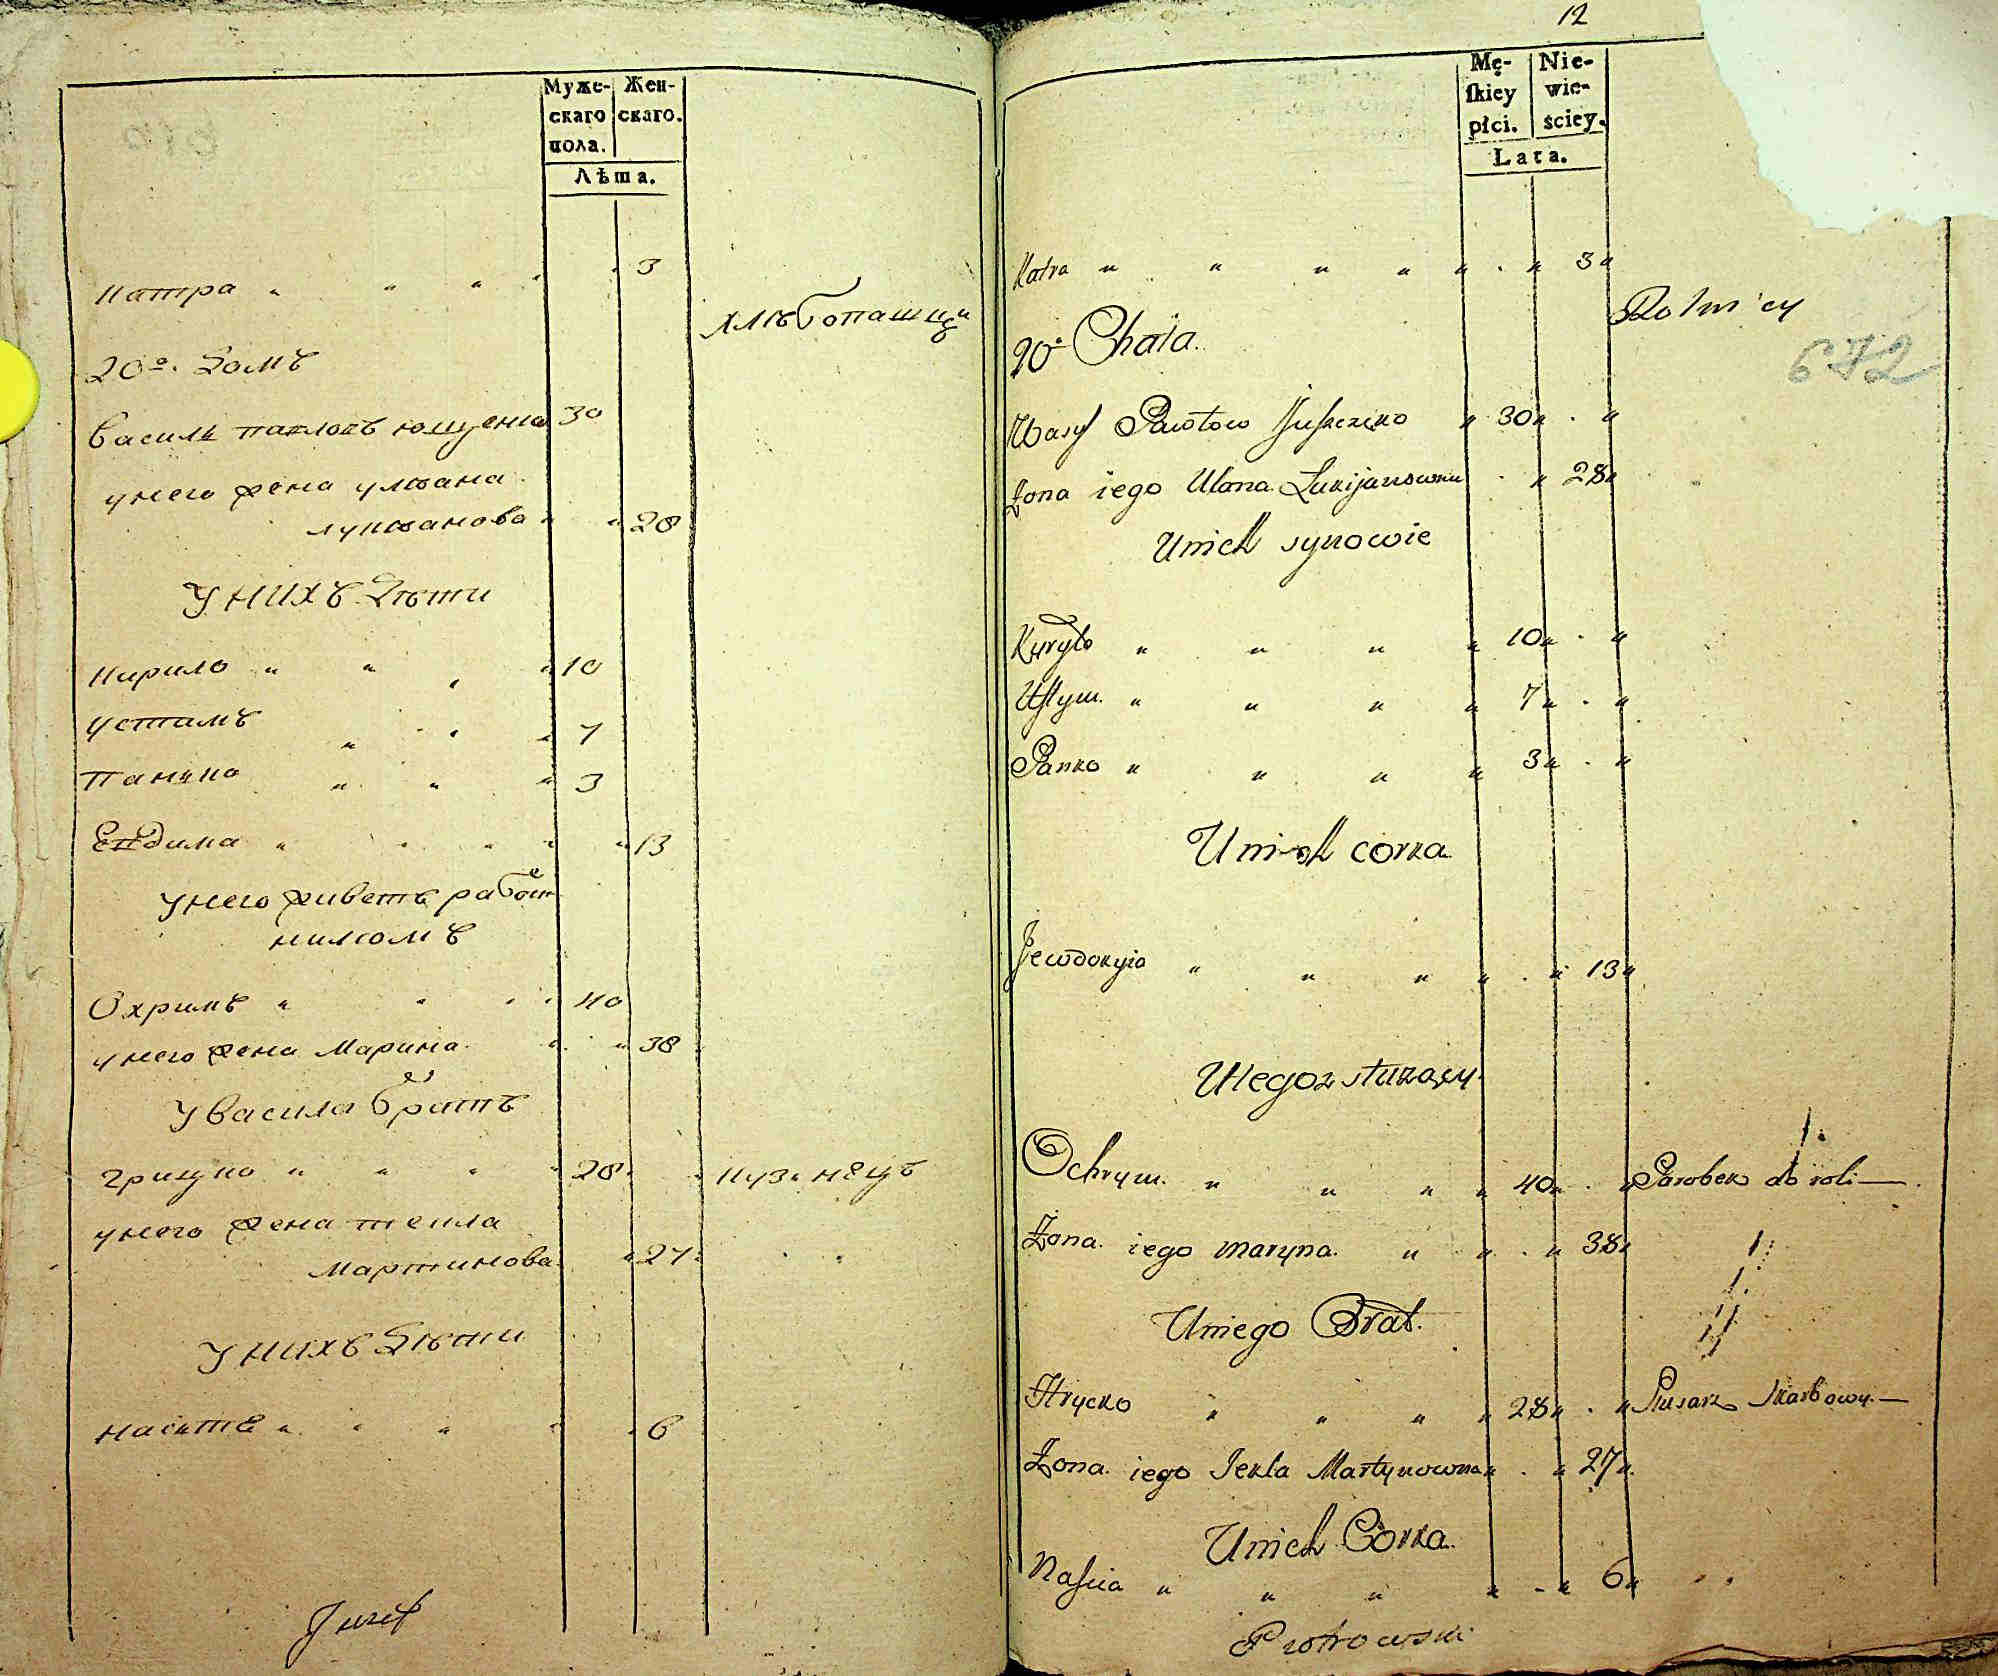 Муже-
скаго
пола.
Жен-
скаго.
Лѣта.
Катра 3
20º. Домъ
хлѣбопашцы
Василь Павловъ Ющенко 30
у него жена Ульяна
Лукьянова 28
У нихъ дѣти
Кирило 10
Устимъ 7
Панько 3
Евдима 13
у него живетъ работ
никомъ
Охримъ 40
у него жена Марина 38
У Васила братъ
Грицко 28 кузнецъ
у него жена Текла
Мартинова 27
У нихъ дѣти
Настя 6
Jusef
12
Mę-
ſkiey
płci.
Nie-
wie-
ściey.
Lata.
Katra 3
20º Chata.
Rolnicy
672
Wasyl Pawłow Juszczeko 30
Żona iego Ulana Łukijanowna 28
U nich synowie
Kyryło 10
Uſtym. 7
Panko 3
U nich corka
Jewdokyia 13
U tegoz służący
Ochrym. 40 Parobek do roli
Żona iego Maryna. 38
U niego Brat.
Hrycko 28 skarbowy.
Żona iego Tekla Martynowna 27
U nich Córka.
Naſcia 6
Piotrowski